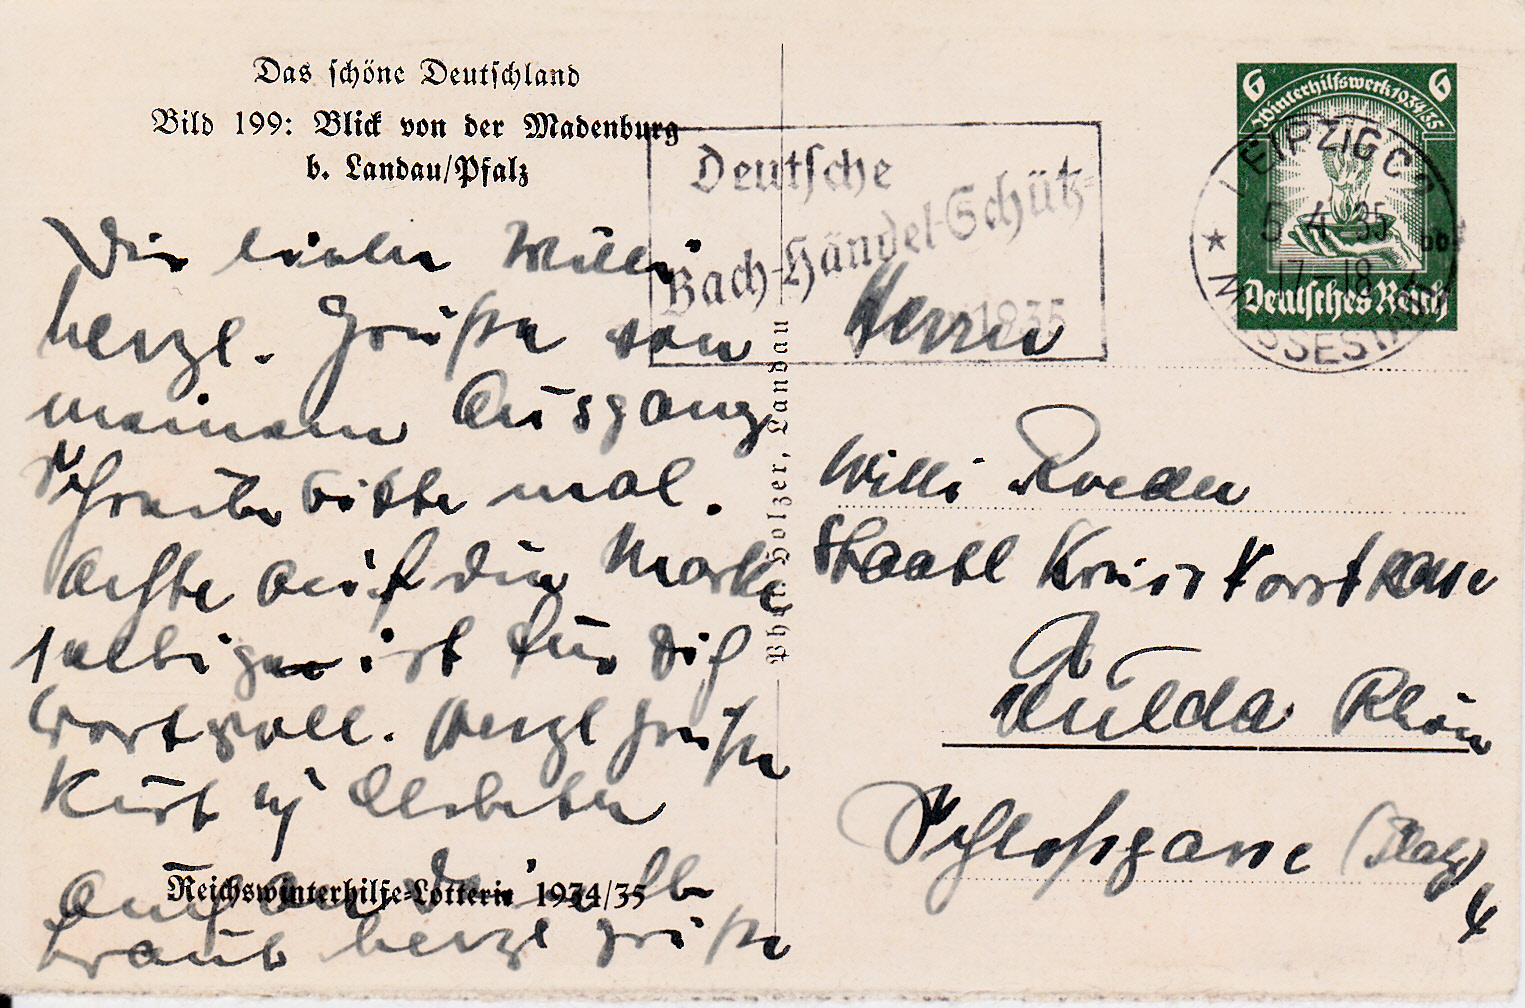 Das schöne Deutschland
Bild 199: Blick von der Madenburg
b. Landau/Pfalz
Dir lieber Willi
herzl. Grüße von
meinem Ausgang
Schreibe bitte mal.
Achte auf die Marke
selbige ist für Dich
wertvoll. Herzl Grüße
Kurt
herzl Grüße
Reichswinterhilfe-Lotterie 1934/35
Photo Holzer, Landau
Deutsche
Bach-Händel-Schütz-
1935
6 6
Winterhilfswerk 1934/35
Deutsches Reich
LEIPZIG C2
5.4.35
17-18
MESSESTADT
Herrn
Willi Roeder
Staatl Kreis Forstkasse
Fulda Rhön
Schloßgasse 4